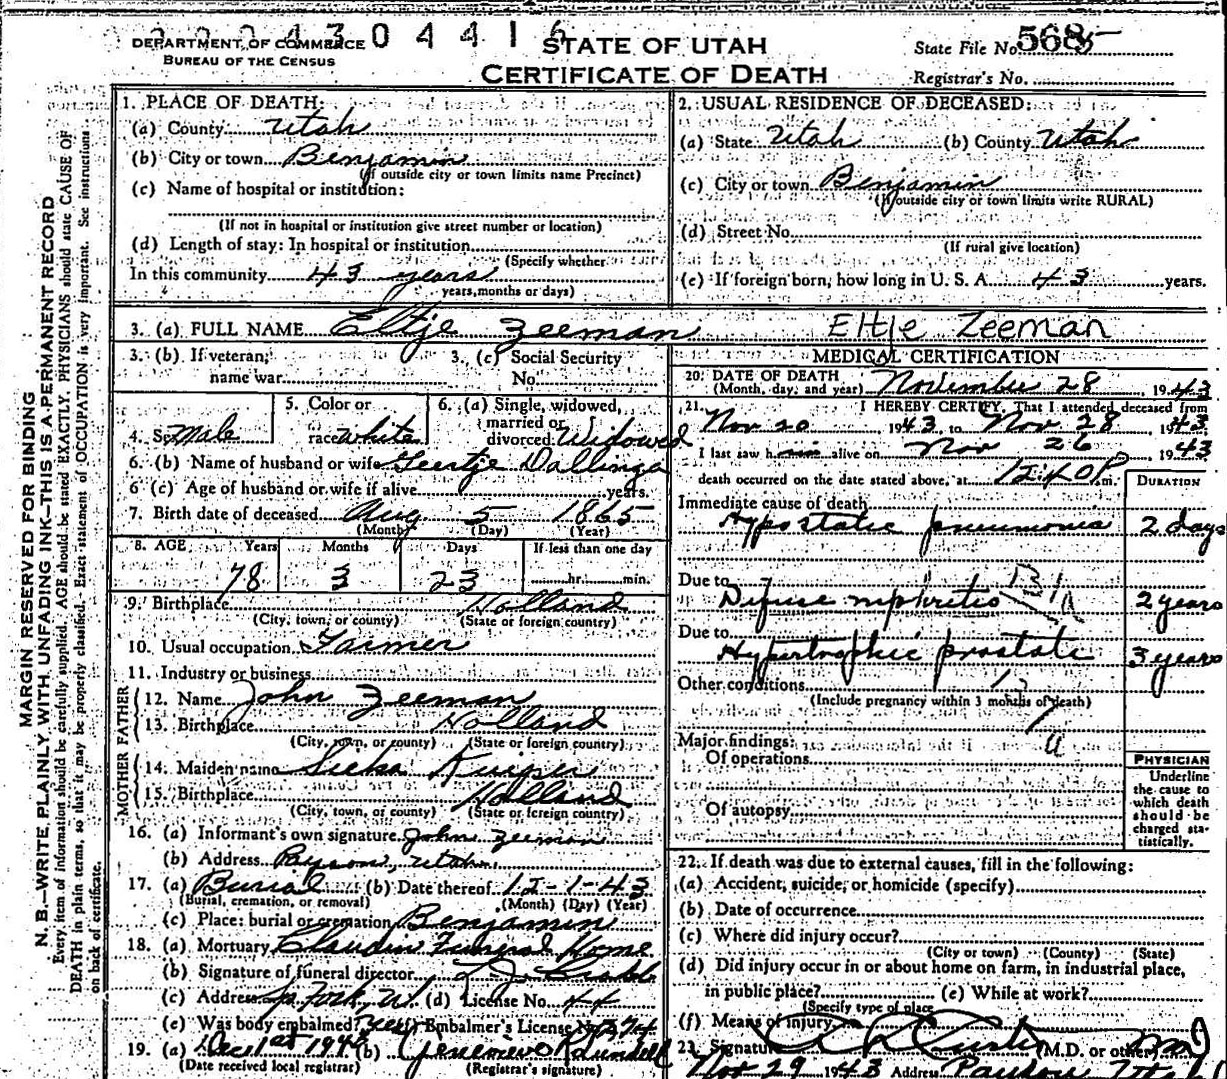 2 2 2 4 3 0 4 4 1 6
DEPARTMENT OF COMMERCE
BUREAU OF THE CENSUS
STATE OF UTAH
CERTIFICATE OF DEATH
State File No. 5685
Registrar's No.
MARGIN RESERVED FOR BINDING
N. B.—WRITE PLAINLY WITH UNFADING INK—THIS IS A PERMANENT RECORD
Every item of information should be carefully supplied. AGE should be stated EXACTLY. PHYSICIANS should state CAUSE OF
DEATH in plain terms, so that it may be properly classified. Exact statement of OCCUPATION is very important. See instructions
on back of certificate.
1. PLACE OF DEATH:
(a) County Utah
(b) City or town Benjamin
(If outside city or town limits name Precinct)
(c) Name of hospital or institution:
(If not in hospital or institution give street number or location)
(d) Length of stay: In hospital or institution
(Specify whether
In this community 43 years
years, months or days)
2. USUAL RESIDENCE OF DECEASED:
(a) State Utah (b) County Utah
(c) City or town Benjamin
(If outside city or town limits write RURAL)
(d) Street No.
(If rural give location)
(e) If foreign born, how long in U. S. A. 43 years.
3. (a) FULL NAME Eltje Zeeman Eltje Zeeman
3. (b) If veteran, name war
3. (c) Social Security No.
4. Sex Male
5. Color or race white
6. (a) Single, widowed, married or divorced Widowed
6. (b) Name of husband or wife Geertje Dallinga
6 (c) Age of husband or wife if alive years.
7. Birth date of deceased Aug 5 1865
(Month) (Day) (Year)
8. AGE Years Months Days If less than one day
78 3 23 hr. min.
9. Birthplace Holland
(City, town, or county) (State or foreign country)
10. Usual occupation Farmer
11. Industry or business
FATHER
12. Name John Zeeman
13. Birthplace Holland
(City, town, or county) (State or foreign country)
MOTHER
14. Maiden name Kuiper
15. Birthplace Holland
(City, town, or county) (State or foreign country)
16. (a) Informant's own signature John Zeeman
(b) Address Payson, Utah
17. (a) Burial (b) Date thereof 12-1-43
(Burial, cremation, or removal) (Month) (Day) (Year)
(c) Place: burial or cremation Benjamin
18. (a) Mortuary Claudin Funeral Home
(b) Signature of funeral director
(c) Address Sp. Fork, Ut. (d) License No. 44
(e) Was body embalmed? Yes (f) Embalmer's License No. 274
19. (a) Dec 1st 1943 (b) Genevieve
(Date received local registrar) (Registrar's signature)
MEDICAL CERTIFICATION
20. DATE OF DEATH
(Month, day, and year) November 28 1943
21. I HEREBY CERTIFY, That I attended deceased from
Nov 20 1943, to Nov. 28 1943
I last saw h im alive on Nov 26 1943
death occurred on the date stated above, at 12:40 P m.
DURATION
Immediate cause of death
Hypostatic pneumonia 2 days
Due to
Difuse nephritis 2 years
Due to
Hypertrophic prostate 3 years
Other conditions
(Include pregnancy within 3 months of death)
Major findings:
Of operations
Of autopsy
PHYSICIAN
Underline
the cause to
which death
should be
charged sta-
tistically.
22. If death was due to external causes, fill in the following:
(a) Accident, suicide, or homicide (specify)
(b) Date of occurrence
(c) Where did injury occur?
(City or town) (County) (State)
(d) Did injury occur in or about home on farm, in industrial place,
in public place? (e) While at work?
(Specify type of place
(f) Means of injury
23. Signature (M.D. or other) MD
Nov 29 1943 Address Payson Utah